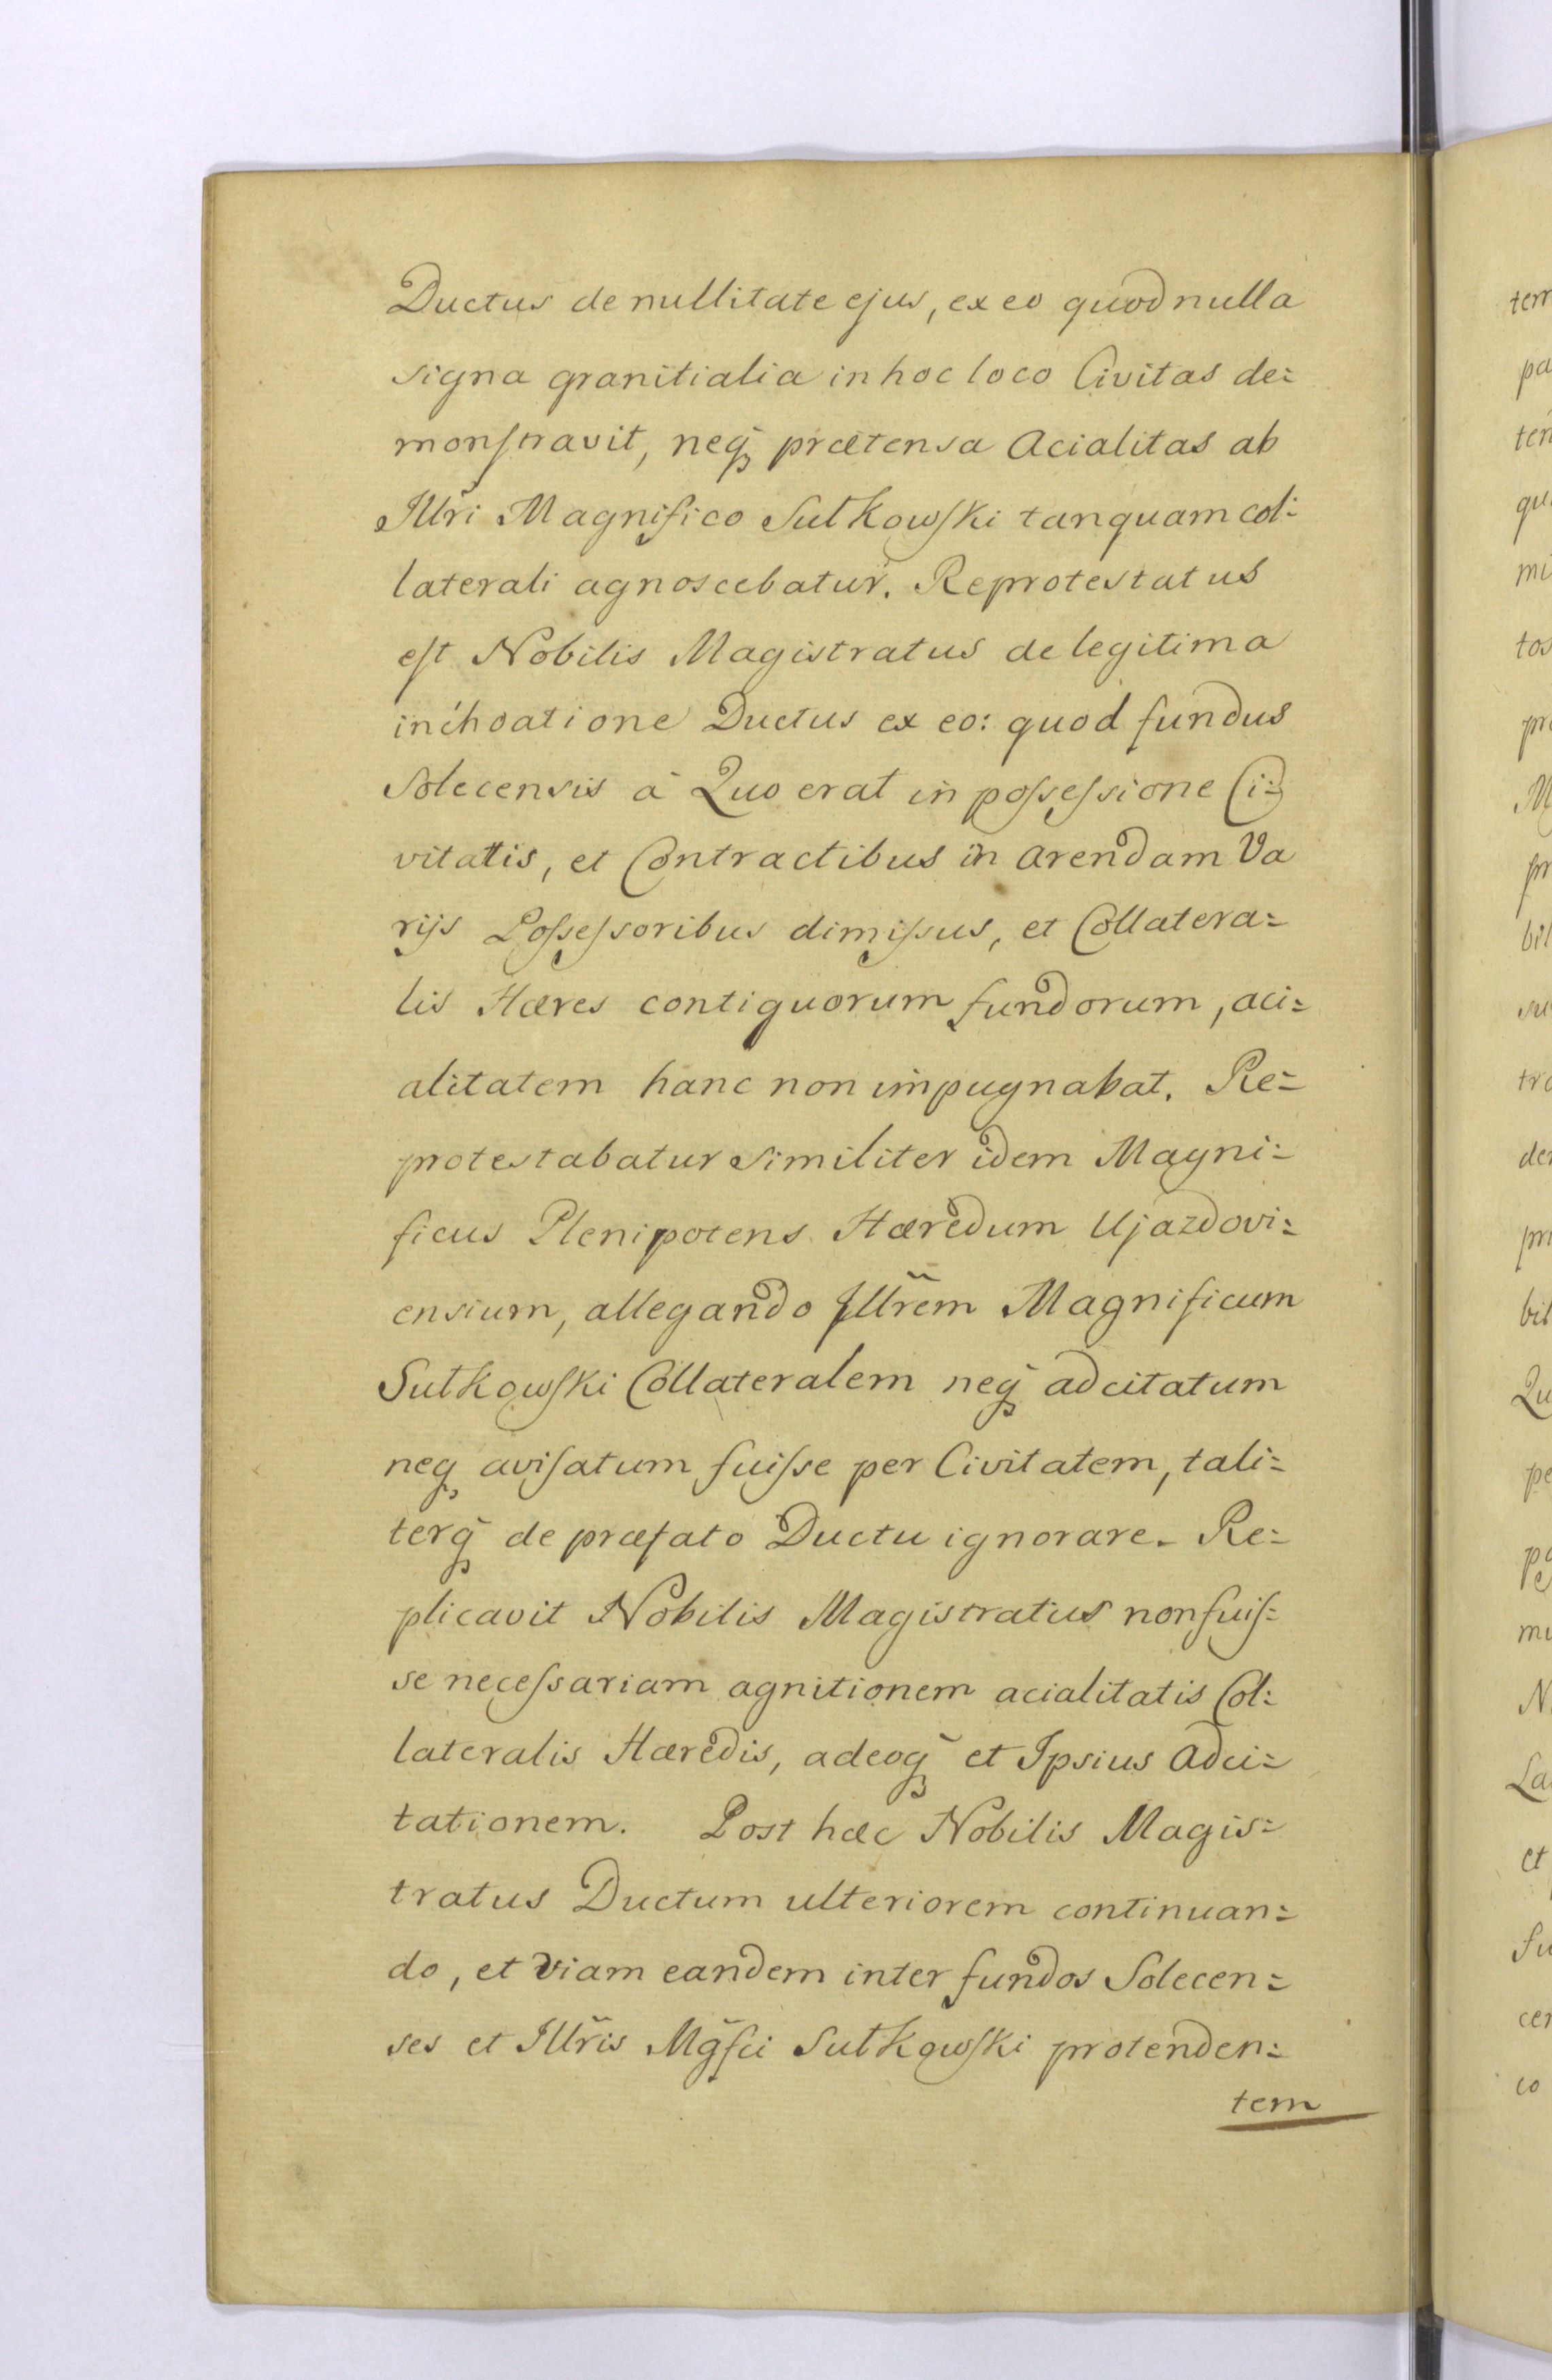 Ductus de nullitate ejus, ex eo quod nulla
signa granitialia in hoc loco Civitas de=
monſtravit, neq̃ prætensa Acialitas ab
Illr̃i Magnifico Sułkowſki tanquam col=
laterali agnoscebatur. Reprotestatus
eſt Nobilis Magistratus de legitima
inchoatione Ductus ex eo: quod fundus
Solecensis à Quo erat in poſseſsione Ci=
vitatis, et Contractibus in arendam Va
rijs Poſseſsoribus dimiſsus, et Collatera=
lis Hæres contiguorum fundorum, aci=
alitatem hanc non impugnabat. Re=
protestabatur similiter idem Magni=
ficus Plenipotens Hæredum Ujazdovi=
ensium, allegando Illr̃em Magnificum
Sułkowſki Collateralem neq̃ adcitatum
neq aviſatum fuiſse per Civitatem, tali=
terq̃ de præfato Ductu ignorare. Re=
plicavit Nobilis Magistratus non fuiſ=
se neceſsariam agnitionem acialitatis Col=
lateralis Hæredis, adeoq̃ et Ipsius adci=
tationem. Post hæc Nobilis Magis=
tratus Ductum ulteriorem continuan=
do, et viam eandem inter fundos Solecen=
ses et Illr̃is Mg̃fci Sułkowſki protenden=
tem